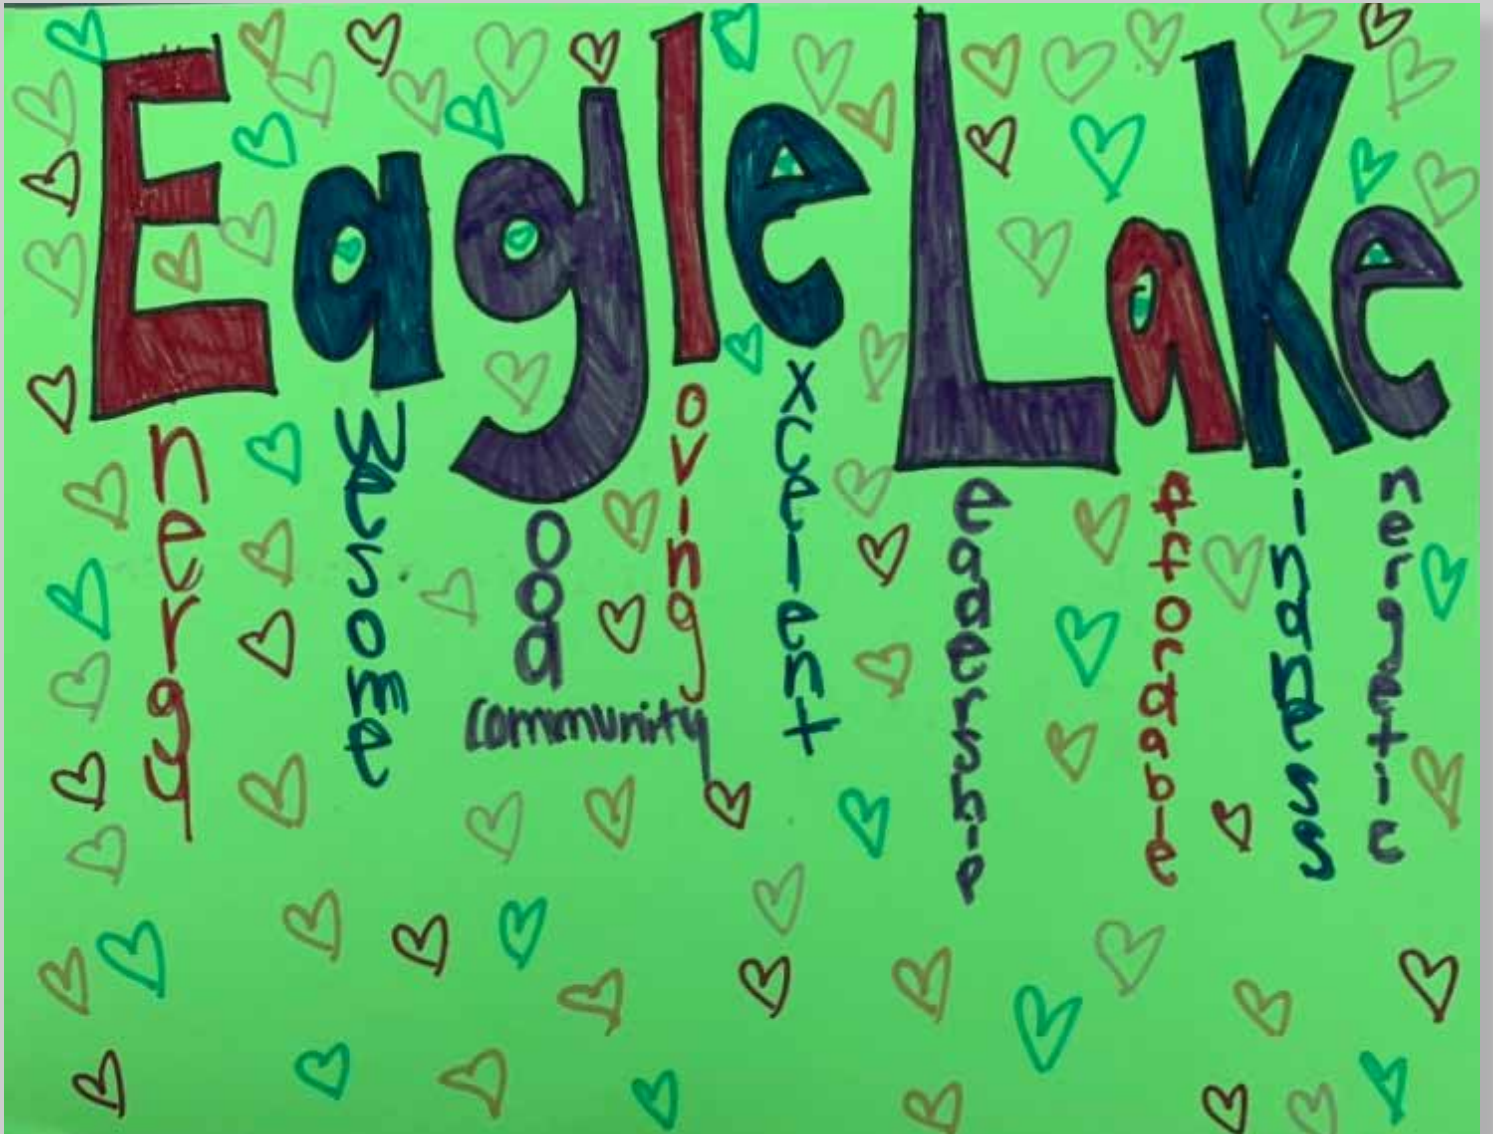 Eagle Lake
Energy
awesome
good
community
loving
excelent
Leadership
affordable
Kindness
energetic